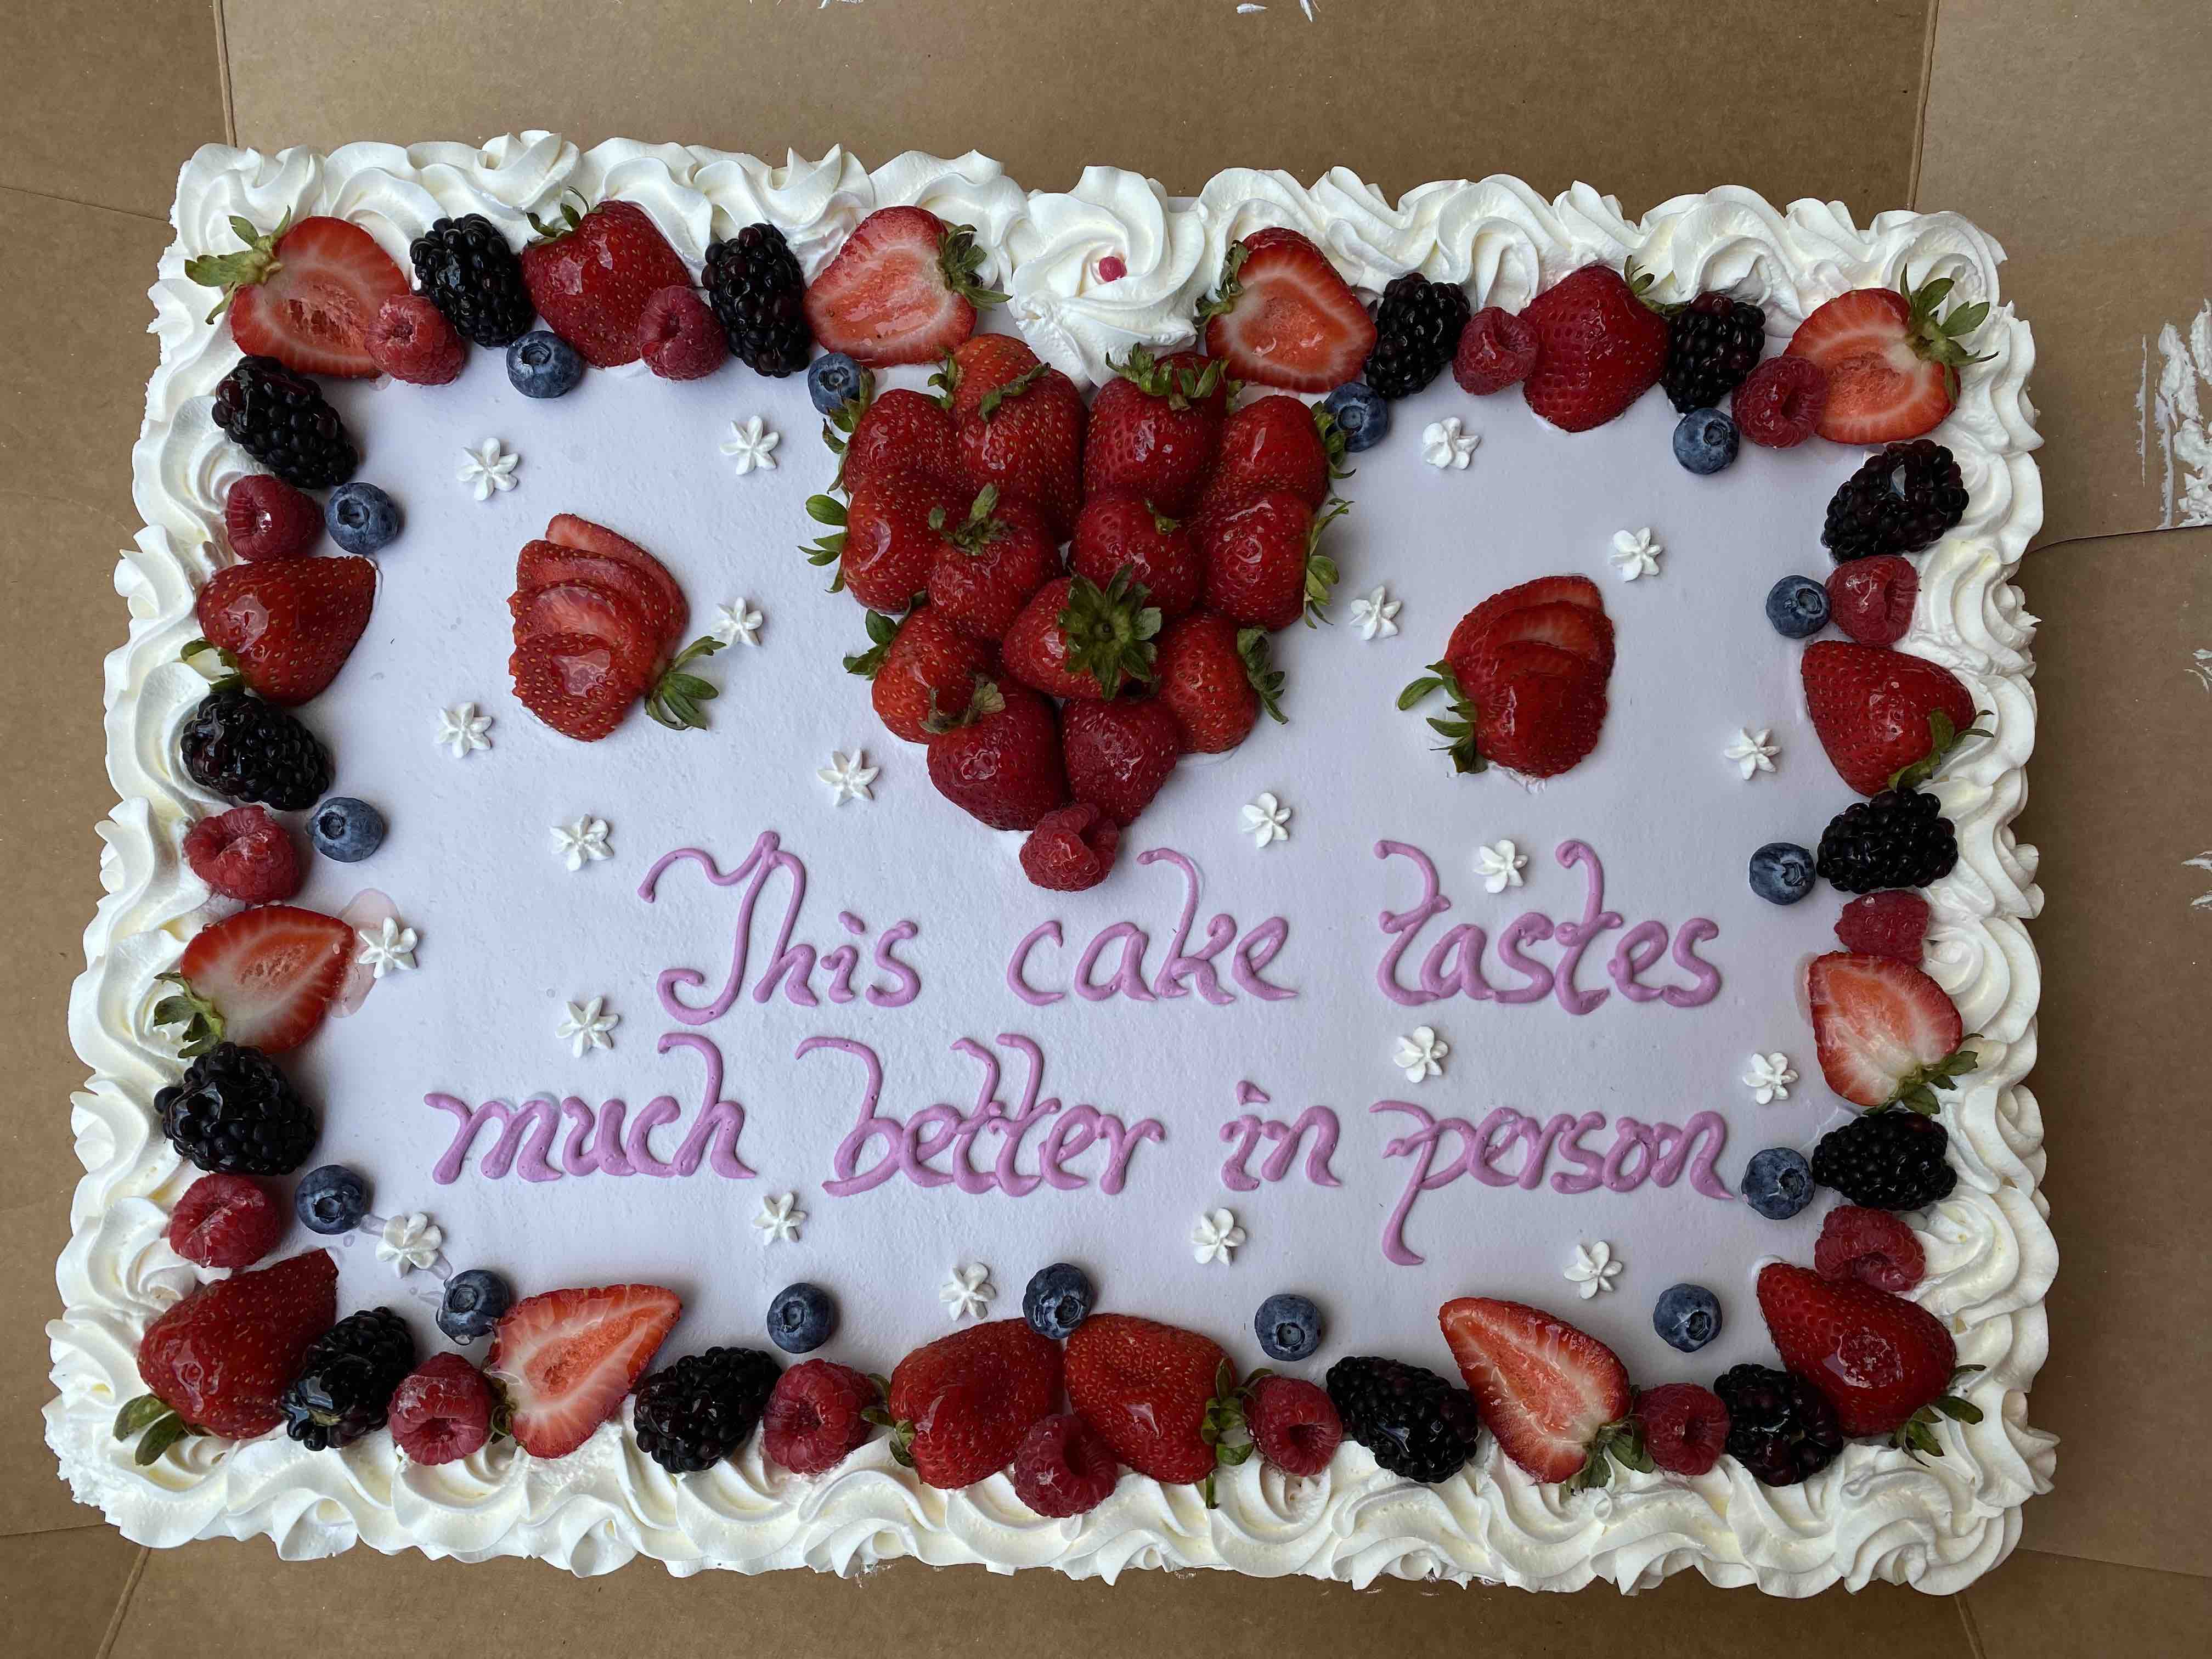 This cake tastes
much better in person